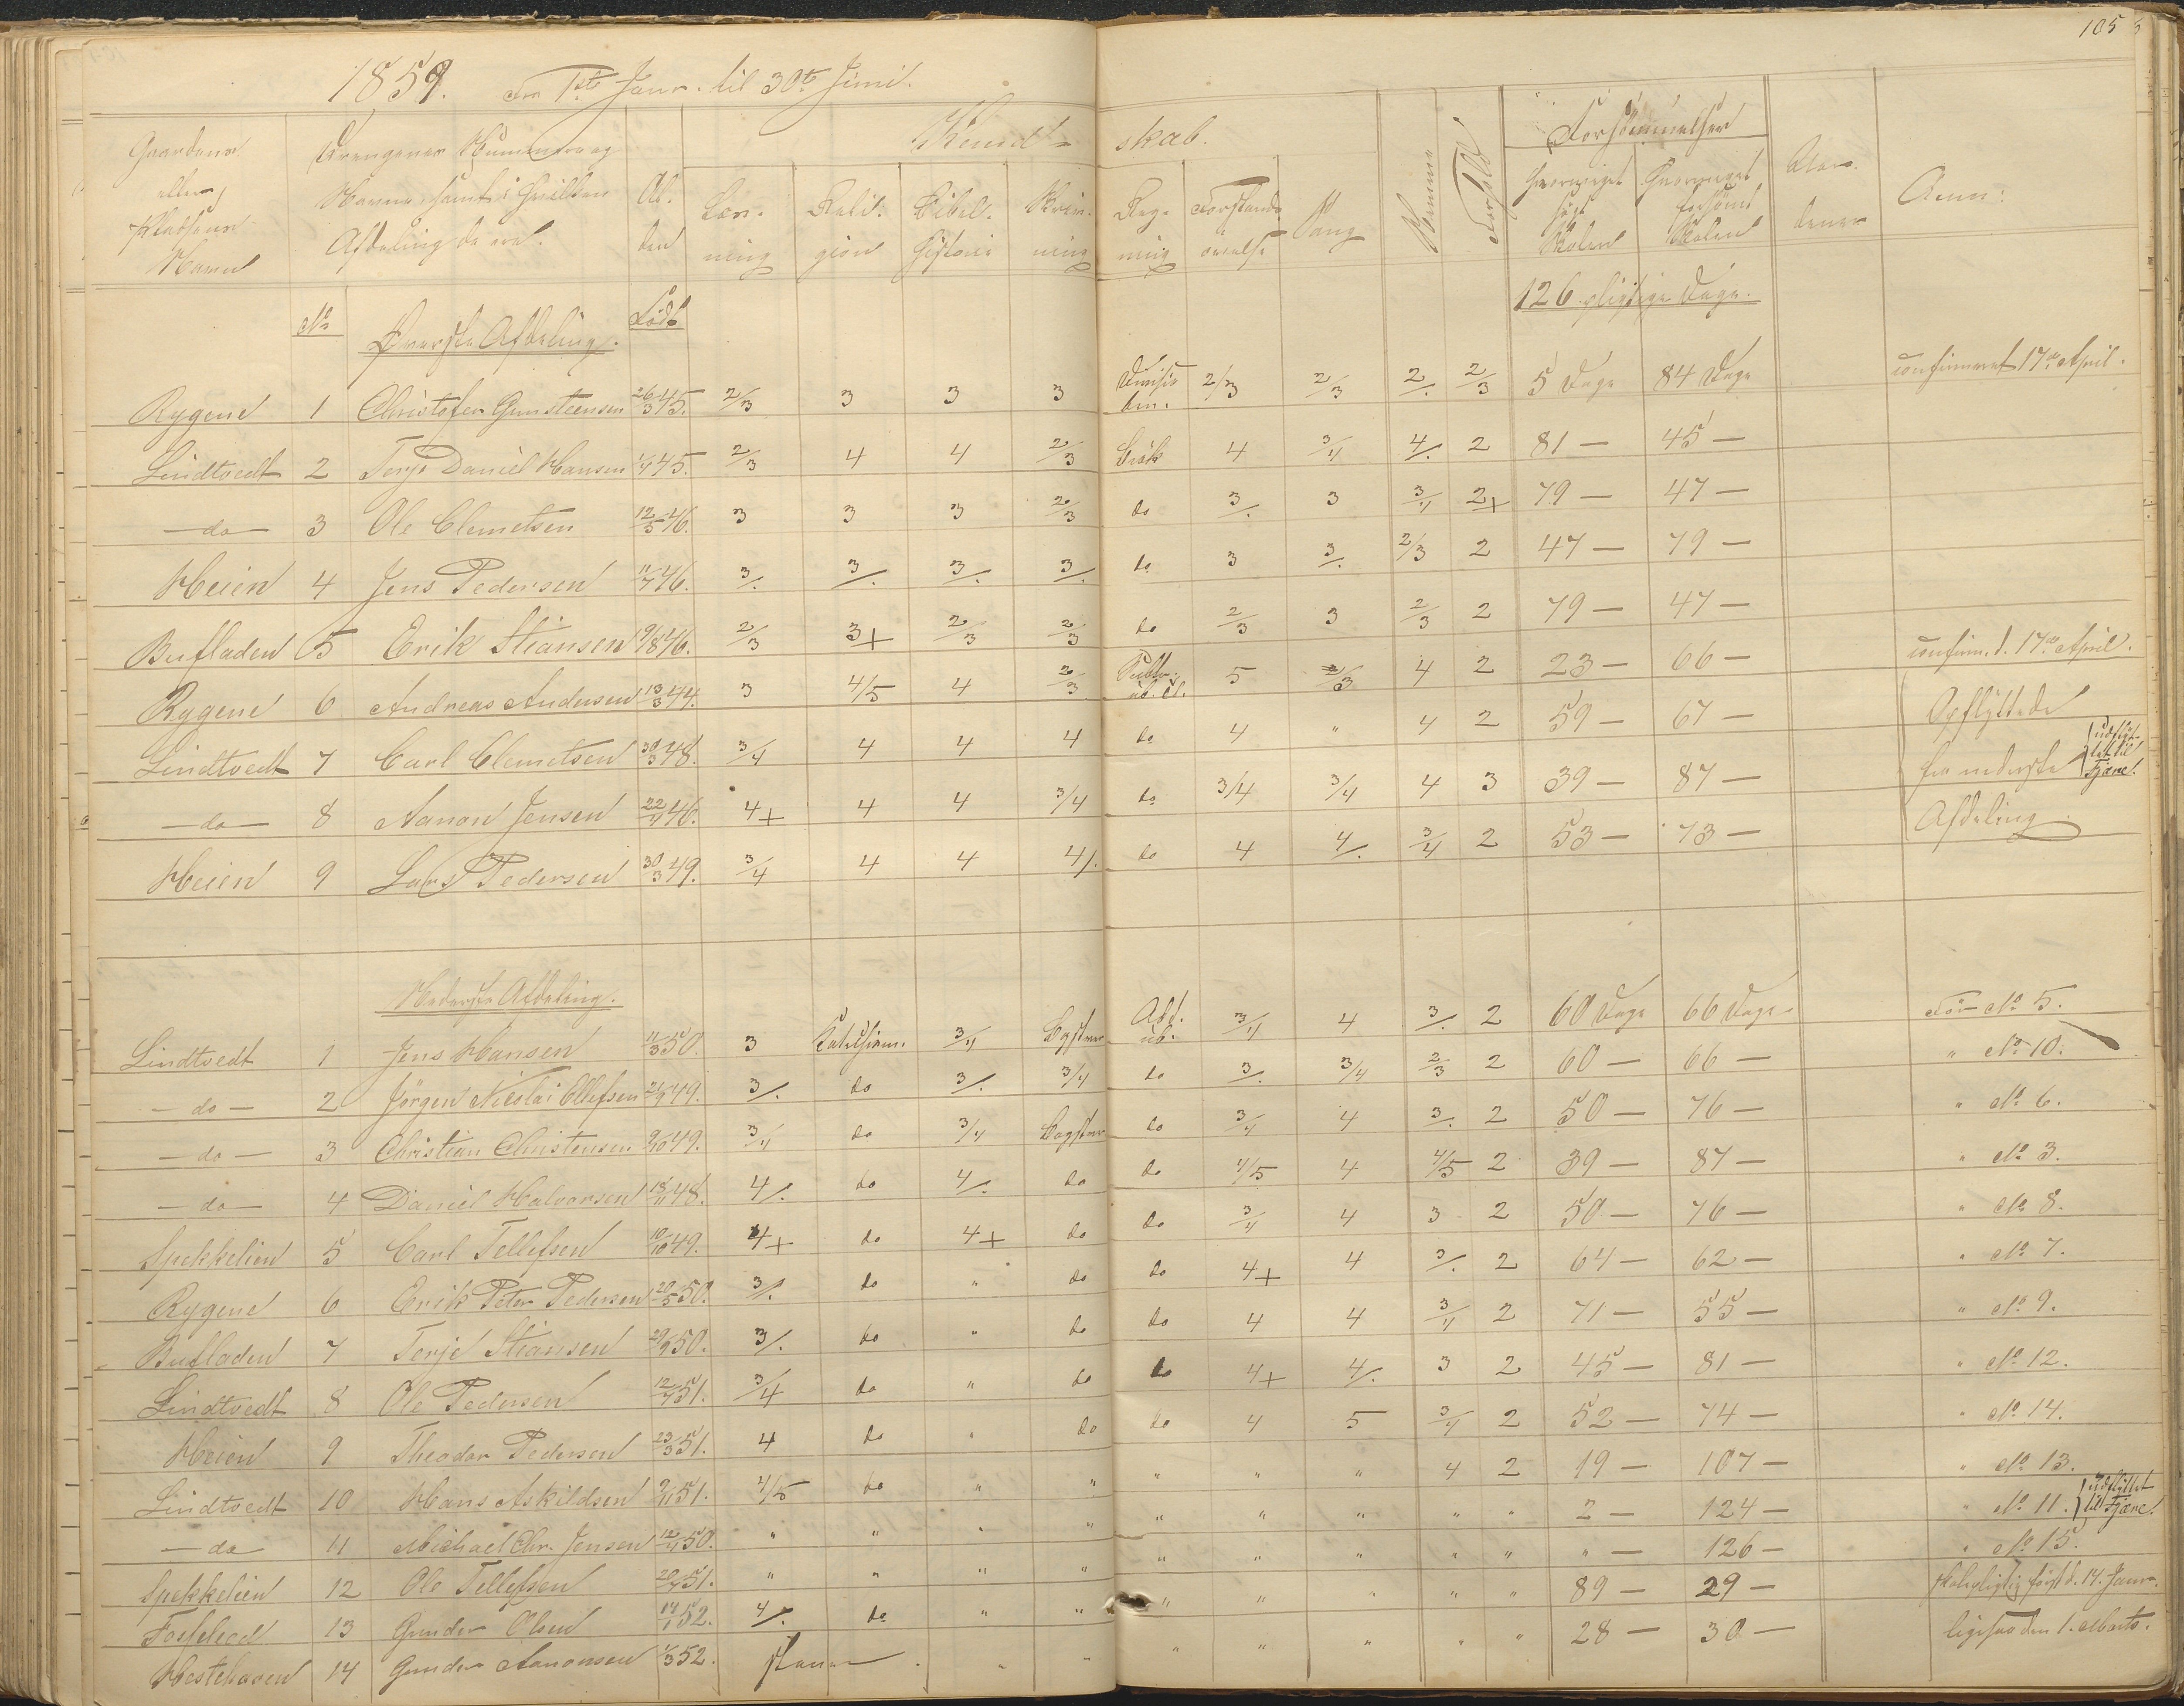 105
1859. Fra 1ste Januar til 30te Juni.
Gaardens eller Pladsens Navn | Drengenes Nummer og Navne, samt i hvilken Afdeling de ere. | Al-der | Kundskab. | Forsömmelser | Anm:
Læs-ning | Reli-gion | Bibel-historie | Skriv-ning | Reg-ning | Forstands-övelse | Sang | Nemme | Forhold | hvormeget sögt Skolen | hvormeget forsömt Skolen
No | Øverste Afdeling. | Född | 126 pligtige Dage.
Rygene 1 Christofer Gunsteensen 26/3 45. 2/3 3 3 3 Division ben. 2/3 2/3 2/. 2/3 5 Dage 84 Dage confirmeret 17de April.
Lindtvedt 2 Terje Daniel Hansen 1/4 45. 2/3 4 4 2/3 Brök 4 3/4 4/. 2 81 — 45 —
— do — 3 Ole Clemetsen 12/5 46. 3 3 3 2/3 do 3/. 3 3/4 2+ 79 — 47 —
Heien 4 Jens Pedersen 11/7 46. 3/. 3/. 3/. 3/. do 3 3/. 2/3 2 47 — 79 —
Bufladen 5 Erik Stiansen 19/8 46. 2/3 3+ 2/3 2/3 do 2/3 3 2/3 2 79 — 47 —
Rygene 6 Andreas Andersen 13/3 44. 3 4/5 4 2/3 5 2/3 4 2 23 — 66 — confirm. d. 17de April.
Lindtvedt 7 Carl Clemetsen 30/3 48. 3/4 4 4 4 do 4 " 4 2 59 — 67 — Opflyttede
— do — 8 Aanon Jensen 22/4 46. 4+ 4 4 3/4 do 3/4 3/4 4 3 39 — 87 — fra nederste udflyt-tet til Fjære.
Heien 9 Lars Pedersen 30/3 49. 3/4 4 4 4/. do 4 4/. 3/4 2 53 — 73 — Afdeling.
Nederste Afdeling.
Lindtvedt 1 Jens Hansen 11/3 50. 3 Katechism. 3/4 Bogstaver Add. ub. 3/4 4 3/. 2 60 Dage 66 Dage För No 5.
— do — 2 Jörgen Nicolai Ollefsen 49. 3/. do 3/. 3/4 do 3/. 3/4 2/3 2 60 — 66 — " No 10.
— do — 3 Christian Christensen 9/10 49. 3/4 do 3/4 Bogstaver do 3/4 4 3/. 2 50 — 76 — " No 6.
— do — 4 Daniel Halvorsen 18/11 48. 4/. do 4/. do do 4/5 4 4/5 2 39 — 87 — " No 3.
Spekkelien 5 Carl Tellefsen 10/10 49. 4+ do 4+ do do 3/4 4 3 2 50 — 76 — " No 8.
Rygene 6 Erik Peter Pedersen 20/5 50. 3/. do " do do 4+ 4 3/. 2 64 — 62 — " No 7.
Bufladen 7 Terje Stiansen 29/9 50. 3/. do " do do 4 4 3/4 2 71 — 55 — " No 9.
Lindtvedt 8 Ole Pedersen 12/7 51. 3/4 do " do do 4+ 4/. 3 2 45 — 81 — " No 12.
Heien 9 Theodor Pedersen 23/3 51. 4 do " do do 4 5 3/4 2 52 — 74 — " No 14.
Lindtvedt 10 Hans Askildsen 9/11 51. 4/5 do " " " " " 4 2 19 — 107 — " No 13.
— do — 11 Michael Chr. Jensen 12/11 50. " " " " " " " " " 2 — 124 — " No 11. udflyttet til Fjære.
Spekkelien 12 Ole Tellefsen 20/7 51. " " " " " " " " " " — 126 — " No 15.
13 Gunder Olsen 14/1 52. 4/. do " " " " " " " 89 — 29 — skolepligtig först d. 14. Januar.
Hestehaven 14 Gunder Aanonsen 1/3 52. staver " " " " " " " 28 — 30 — ligesaa den 1. Marts.